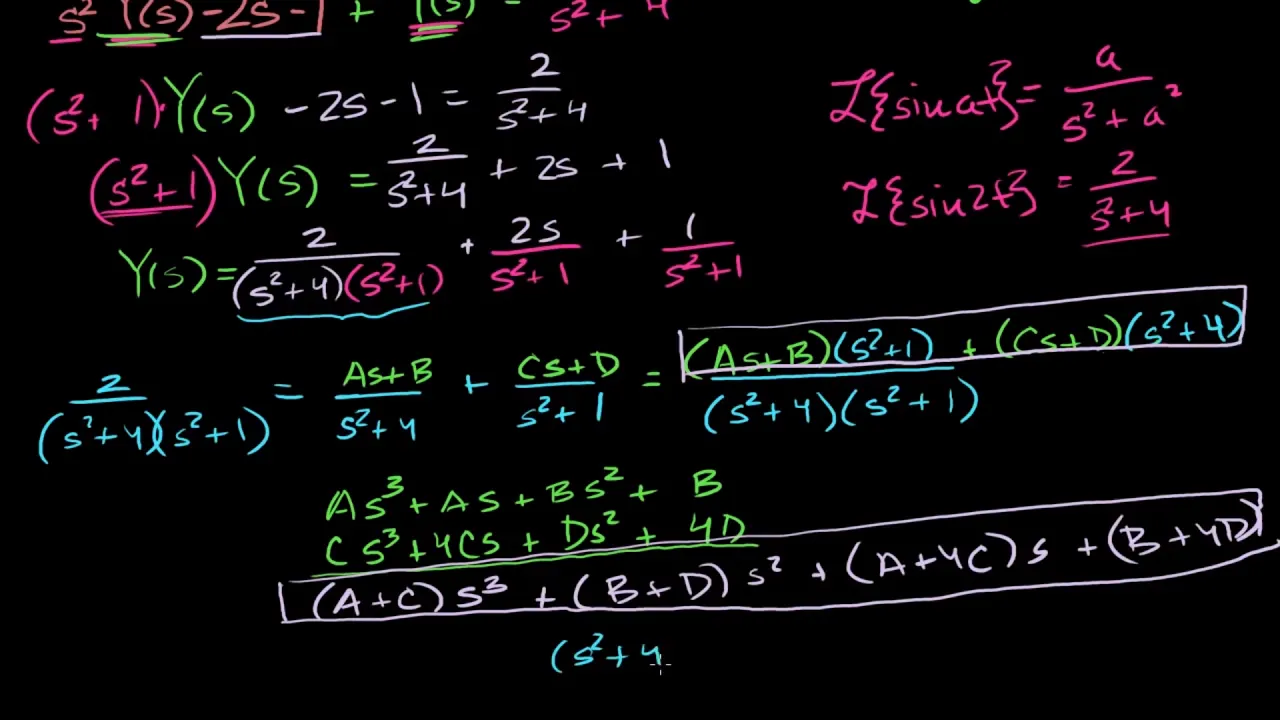 s² Y(s) - 2s - 1 + Y(s) = 2/(s² + 4)
(s² + 1)·Y(s) - 2s - 1 = 2/(s² + 4)
L{sin at} = a/(s² + a²)
(s² + 1) Y(s) = 2/(s² + 4) + 2s + 1
L{sin 2t} = 2/(s² + 4)
Y(s) = 2/((s² + 4)(s² + 1)) + 2s/(s² + 1) + 1/(s² + 1)
2/((s² + 4)(s² + 1)) = (As + B)/(s² + 4) + (Cs + D)/(s² + 1) = ((As + B)(s² + 1) + (Cs + D)(s² + 4))/((s² + 4)(s² + 1))
As³ + As + Bs² + B
Cs³ + 4Cs + Ds² + 4D
(A + C)s³ + (B + D)s² + (A + 4C)s + (B + 4D)
(s² + 4